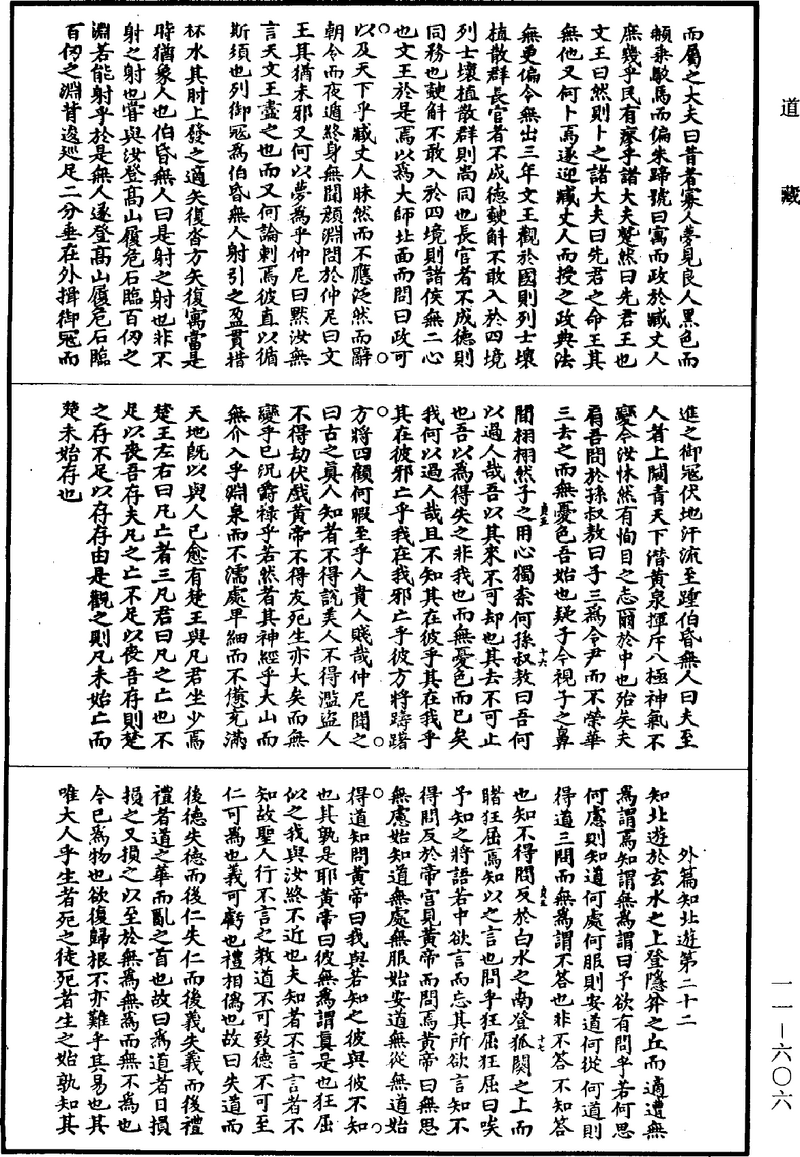 道藏
一一—六〇六
而屬之大夫曰昔者寡人夢見良人黑色而
乘駁馬而偏朱蹄號曰寓而政於臧丈人
庶幾乎民有瘳乎諸大夫蹵然曰先君王也
文王曰然則卜之諸大夫曰先君之命王其
無他又何卜焉遂迎臧丈人而授之政典法
無更偏令無出三年文王觀於國則列士壞
植散群長官者不成德斛不敢入於四境
列士壞植散群則尚同也長官者不成德則
同務也斛不敢入於四境則諸侯無二心
也文王於是焉以為大師北面而問曰政可
以及天下乎臧丈人昧然而不應泛然而辭
朝令而夜遁終身無聞顏淵問於仲尼曰文
王其猶未邪又何以夢為乎仲尼曰默汝無
言夫文王盡之也而又何論刺焉彼直以循
斯須也列御寇為伯昏無人射引之盈貫措
杯水其肘上發之適矢復沓方矢復寓當是
時猶象人也伯昏無人曰是射之射也非不
射之射也嘗與汝登高山履危石臨百仞之
淵若能射乎於是無人遂登高山履危石臨
百仞之淵背逡巡足二分垂在外揖御寇而
進之御寇伏地汗流至踵伯昏無人曰夫至
人者上闚青天下潛黃泉揮斥八極神氣不
變今汝怵然有恂目之志爾於中也殆矣夫
肩吾問於孫叔敖曰子三為令尹而不榮華
三去之而無憂色吾始也疑子今視子之鼻
間栩栩然子之用心獨柰何孫叔敖曰吾何
以過人哉吾以其來不可却也其去不可止
也吾以為得失之非我也而無憂色而已矣
我何以過人哉且不知其在彼乎其在我乎
其在彼邪亡乎我在我邪亡乎彼方將躊躇
方將四顧何暇至乎人貴人賤哉仲尼聞之
曰古之真人知者不得說美人不得濫盜人
不得劫伏戲黃帝不得友死生亦大矣而無
變乎已況爵祿乎若然者其神經乎大山而
無介入乎淵泉而不濡處卑細而不憊充滿
天地既以與人已愈有楚王與凡君坐少焉
楚王左右曰凡亡者三凡君曰凡之亡也不
足以喪吾存夫凡之亡不足以喪吾存則楚
之存不足以存存由是觀之則凡未始亡而
楚未始存也
外篇知北遊第二十二
知北遊於玄水之上登隱弅之丘而適遭無
為謂焉知謂無為謂曰予欲有問乎若何思
何慮則知道何處何服則安道何從何道則
得道三問而無為謂不答也非不答不知答
也知不得問反於白水之南登狐闋之上而
睹狂屈焉知以之言也問乎狂屈狂屈曰唉
予知之將語若中欲言而忘其所欲言知不
得問反於帝宮見黃帝而問焉黃帝曰無思
無慮始知道無處無服始安道無從無道始
得道知問黃帝曰我與若知之彼與彼不知
也其孰是耶黃帝曰彼無為謂真是也狂屈
似之我與汝終不近也夫知者不言言者不
知故聖人行不言之教道不可致德不可至
仁可為也義可虧也禮相偽也故曰失道而
後德失德而後仁失仁而後義失義而後禮
禮者道之華而亂之首也故曰為道者日損
損之又損之以至於無為無為而無不為也
今已為物也欲復歸根不亦難乎其易也其
唯大人乎生者死之徒死者生之始孰知其